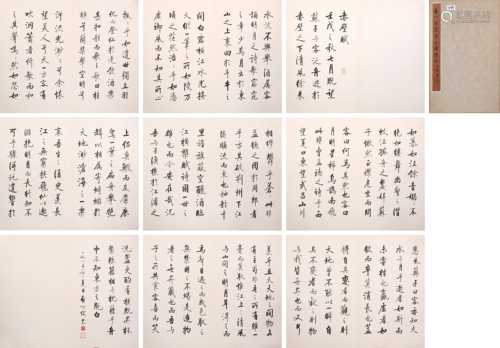 赤壁賦
壬戌之秋七月既望
蘇子與客泛舟遊於
赤壁之下清風徐來
水波不興舉酒屬客
誦明月之詩歌窈窕
之章少焉月出於東
山之上裴回於斗牛之
間白露橫江水光接
天縱一葦之所如凌萬
頃之茫然浩浩乎如馮
虛御風而不知其所止
飄飄乎如遺世獨立羽
化而登仙於是飲酒樂
甚扣舷而歌之歌曰桂
棹兮蘭槳擊空明兮
泝流光渺渺兮余懷
望美人兮天一方客有
吹洞簫者倚歌而和之
其聲嗚嗚然如怨如
慕如泣如訴餘音嫋嫋不
絕如縷舞幽壑之潛
蛟泣孤舟之嫠婦蘇
子愀然正襟危坐而問
客曰何為其然也客曰
月明星稀烏鵲南飛此
非曹孟德之詩乎西
望夏口東望武昌山川
相繆鬱乎蒼蒼此非
孟德之困於周郎者
乎方其破荊州下江
陵順流而東也舳艫千
里旌旗蔽空釃酒臨
江橫槊賦詩固一世之
雄也而今安在哉況
吾與子漁樵於江渚之
上侶魚蝦而友麋鹿
駕一葉之扁舟舉匏
樽以相屬寄蜉蝣於
天地渺滄海之一粟
哀吾生之須臾羨長
江之無窮挾飛仙以遨
遊抱明月而長終知不
可乎驟得託遺響於
悲風蘇子曰客亦知夫
水與月乎逝者如斯而
未嘗往也盈虛者如彼
而卒莫消長也蓋將
自其變者而觀之則
天地曾不能以一瞬自
其不變者而觀之則物
與我皆無盡也而又何
羨乎且夫天地之間物各
有主苟非吾之所有雖一
毫而莫取惟江上之清風
與山間之明月耳得之而
為聲目遇之而成色取之
無禁用之不竭是造物
者之無盡藏也而吾與
子之所共食客喜而笑
洗盞更酌肴核既盡杯
盤狼籍相與枕藉乎舟
中不知東方之既白